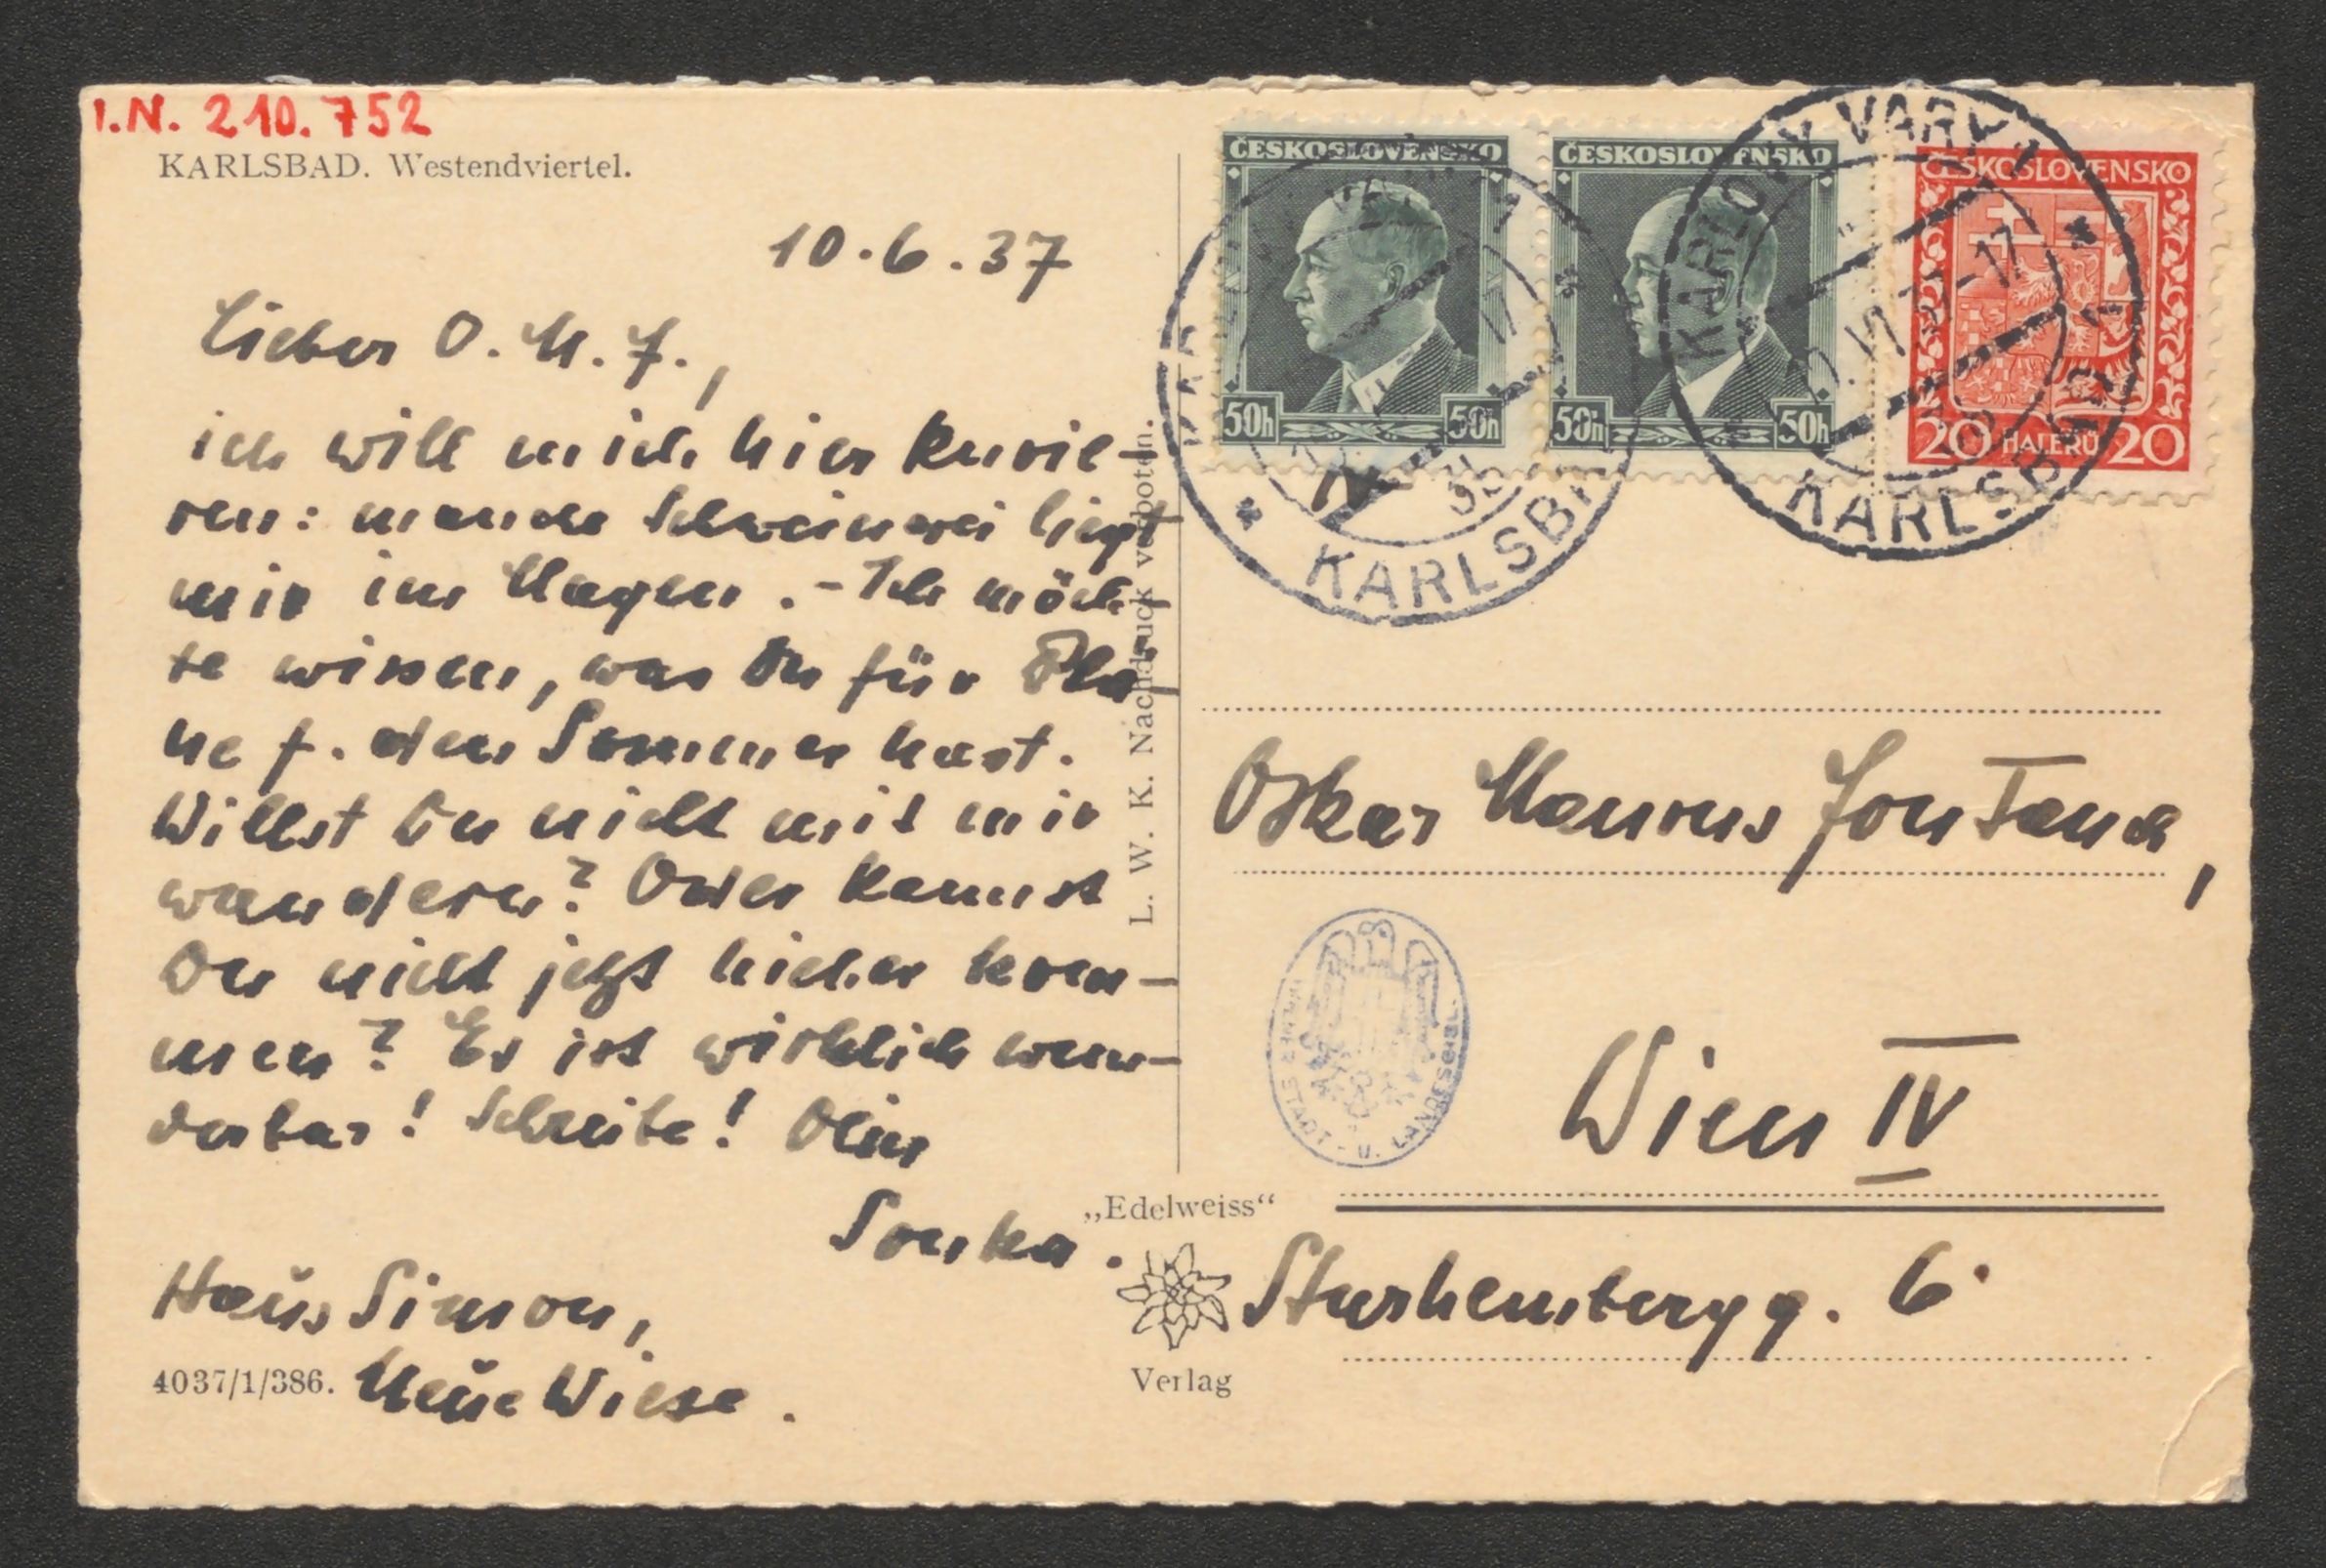 I.N. 210.752
KARLSBAD. Westendviertel.
10.6.37
Lieber O. M. F.,
ich will mich hier kurie-
ren: manche Schweinerei liegt
mir im Magen. - Ich möch-
te wissen, was Du für Plä-
ne f. den Sommer hast.
Willst Du nicht mit mir
wandern? Oder kannst
Du nicht jetzt hieher kom-
men? Es ist wirklich wun-
derbar! Schreibe! Dein
Sonka.
Haus Simon,
Neue Wiese.
4037/1/386.
L. W. K. Nachdruck verboten.
„Edelweiss“
Verlag
ČESKOSLOVENSKO
50h 50h
ČESKOSLOVENSKO
50h 50h
ČESKOSLOVENSKO
20 HALÉŘŮ 20
KARLSBAD
KARLOVY VARY 1
KARLSBAD 1
Oskar Maurus Fontana,
WIENER STADT- U. LANDESBIBL.
Wien IV
Starhembergg. 6